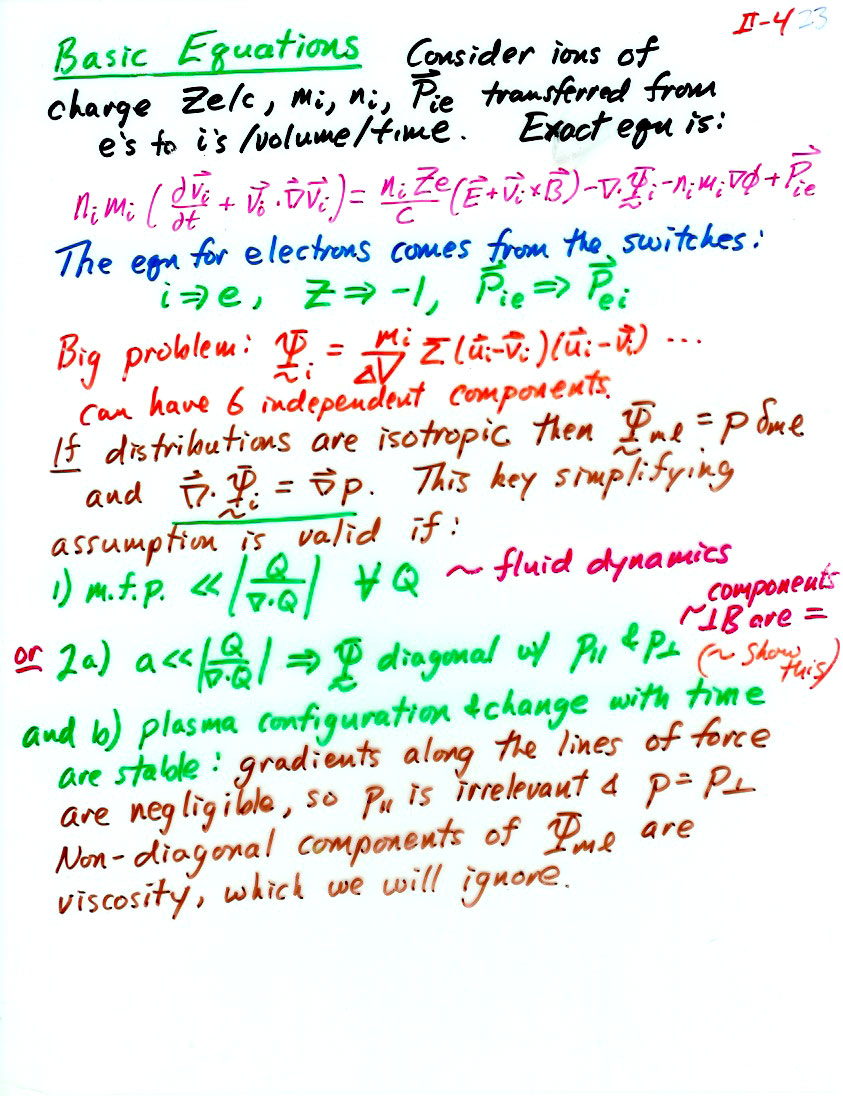 II-4 23
Basic Equations Consider ions of
charge Ze/c, mᵢ, nᵢ, P⃗ᵢₑ transferred from
e's to i's /volume/time. Exact eqn is:
nᵢ mᵢ (∂v⃗ᵢ/∂t + v⃗ᵢ · ∇⃗v⃗ᵢ) = nᵢ Ze/c (E⃗ + v⃗ᵢ × B⃗) - ∇ · Ψᵢ - nᵢ mᵢ ∇φ + P⃗ᵢₑ
The eqn for electrons comes from the switches:
i ⇒ e, Z ⇒ -1, P⃗ᵢₑ ⇒ P⃗ₑᵢ
Big problem: Ψᵢ = mᵢ/ΔV Σ (u⃗ᵢ-v⃗ᵢ)(u⃗ᵢ-v⃗ᵢ) ...
can have 6 independent components.
If distributions are isotropic then Ψₘₗ = p δₘₗ
and ∇⃗ · Ψᵢ = ∇⃗p. This key simplifying
assumption is valid if:
1) m.f.p. << |Q/∇·Q| ∀ Q ~ fluid dynamics
components
~⊥B are =
or 2a) a << |Q/∇·Q| ⇒ Ψ diagonal w/ p∥ & p⊥ (~ show this)
and b) plasma configuration & change with time
are stable: gradients along the lines of force
are negligible, so p∥ is irrelevant & p = p⊥
Non-diagonal components of Ψₘₗ are
viscosity, which we will ignore.